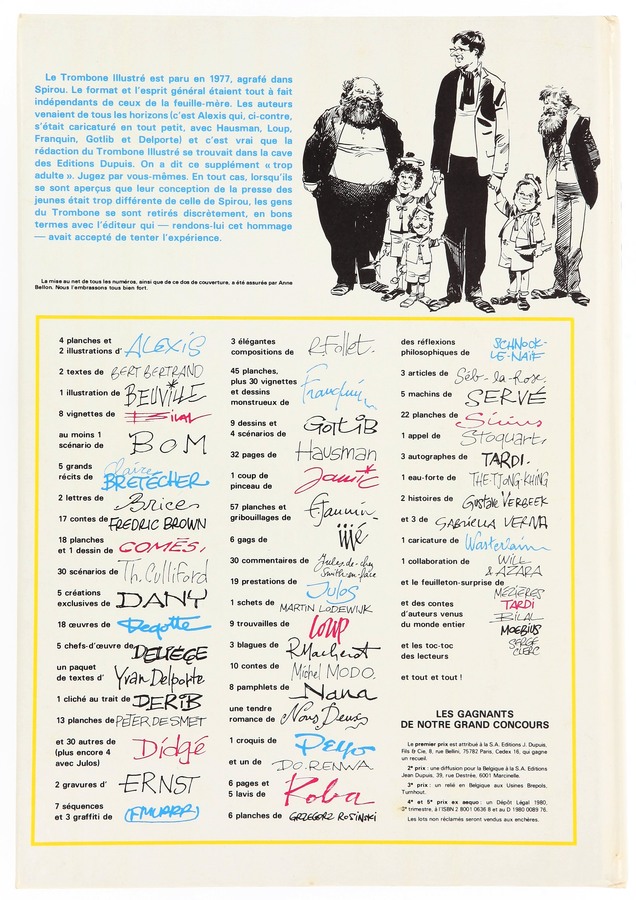 Le Trombone Illustré est paru en 1977, agrafé dans
Spirou. Le format et l'esprit général étaient tout à fait
indépendants de ceux de la feuille-mère. Les auteurs
venaient de tous les horizons (c'est Alexis qui, ci-contre,
s'était caricaturé en tout petit, avec Hausman, Loup,
Franquin, Gotlib et Delporte) et c'est vrai que la
rédaction du Trombone Illustré se trouvait dans la cave
des Editions Dupuis. On a dit ce supplément « trop
adulte ». Jugez par vous-mêmes. En tout cas, lorsqu'ils
se sont aperçus que leur conception de la presse des
jeunes était trop différente de celle de Spirou, les gens
du Trombone se sont retirés discrètement, en bons
termes avec l'éditeur qui — rendons-lui cet hommage
— avait accepté de tenter l'expérience.
La mise au net de tous les numéros, ainsi que de ce dos de couverture, a été assurée par Anne
Bellon. Nous l'embrassons tous bien fort.
4 planches et
2 illustrations d' ALEXIS
2 textes de BERT BERTRAND
1 illustration de BEUVILLE
8 vignettes de BILAL
au moins 1
scénario de BOM
5 grands
récits de Claire BRETÉCHER
2 lettres de Brices
17 contes de FREDRIC BROWN
18 planches
et 1 dessin de COMÈS
30 scénarios de Th. Culliford
5 créations
exclusives de DANY
18 œuvres de Degotte
5 chefs-d'œuvre de DELIÈGE
un paquet
de textes d' Yvan Delporte
1 cliché au trait de DERIB
13 planches de PETER DE SMET
et 30 autres de
(plus encore 4
avec Julos) Didgé
2 gravures d' ERNST
7 séquences
et 3 graffiti de (FMURRR)
3 élégantes
compositions de R. Follet.
45 planches,
plus 30 vignettes
et dessins
monstrueux de Franquin
9 dessins et
4 scénarios de GOTLIB
32 pages de Hausman
1 coup de
pinceau de Janic
57 planches et
gribouillages de F. Jannin
6 gags de jijé
30 commentaires de Jules de-chez
Smith-en-face
19 prestations de Julos
1 schets de MARTIN LODEWIJK
9 trouvailles de LOUP
3 blagues de R. Macherot
10 contes de Michel MODO.
8 pamphlets de Nana
une tendre
romance de Nous Deux
1 croquis de Peyo
et un de DO. RENWA
6 pages et
5 lavis de Roba
6 planches de GRZEGORZ ROSINSKI
des réflexions
philosophiques de SCHNOCK-
LE-NAÏF
3 articles de Séb-la-Rose.
5 machins de SERVÉ
22 planches de Sirius
1 appel de Stoquart,
3 autographes de TARDI.
1 eau-forte de THE-TJONG-KHING
2 histoires de Gustave VERBEEK
et 3 de GABRIELLA VERNA
1 caricature de Wasterlain
1 collaboration de WILL
& AZARA
et le feuilleton-surprise de
MÉZIÈRES
TARDI
BILAL
MOEBIUS
SERGE
CLERC
et des contes
d'auteurs venus
du monde entier
et les toc-toc
des lecteurs
et tout et tout !
LES GAGNANTS
DE NOTRE GRAND CONCOURS
Le premier prix est attribué à la S.A. Editions J. Dupuis,
Fils & Cie, 8, rue Bellini, 75782 Paris, Cedex 16, qui gagne
un recueil.
2e prix : une diffusion pour la Belgique à la S.A. Editions
Jean Dupuis, 39, rue Destrée, 6001 Marcinelle.
3e prix : un relié en Belgique aux Usines Brepols,
Turnhout.
4e et 5e prix ex aequo : un Dépôt Légal 1980,
2e trimestre, à l'ISBN 2 8001 0636 8 et au D 1980 0089 76.
Les lots non réclamés seront vendus aux enchères.